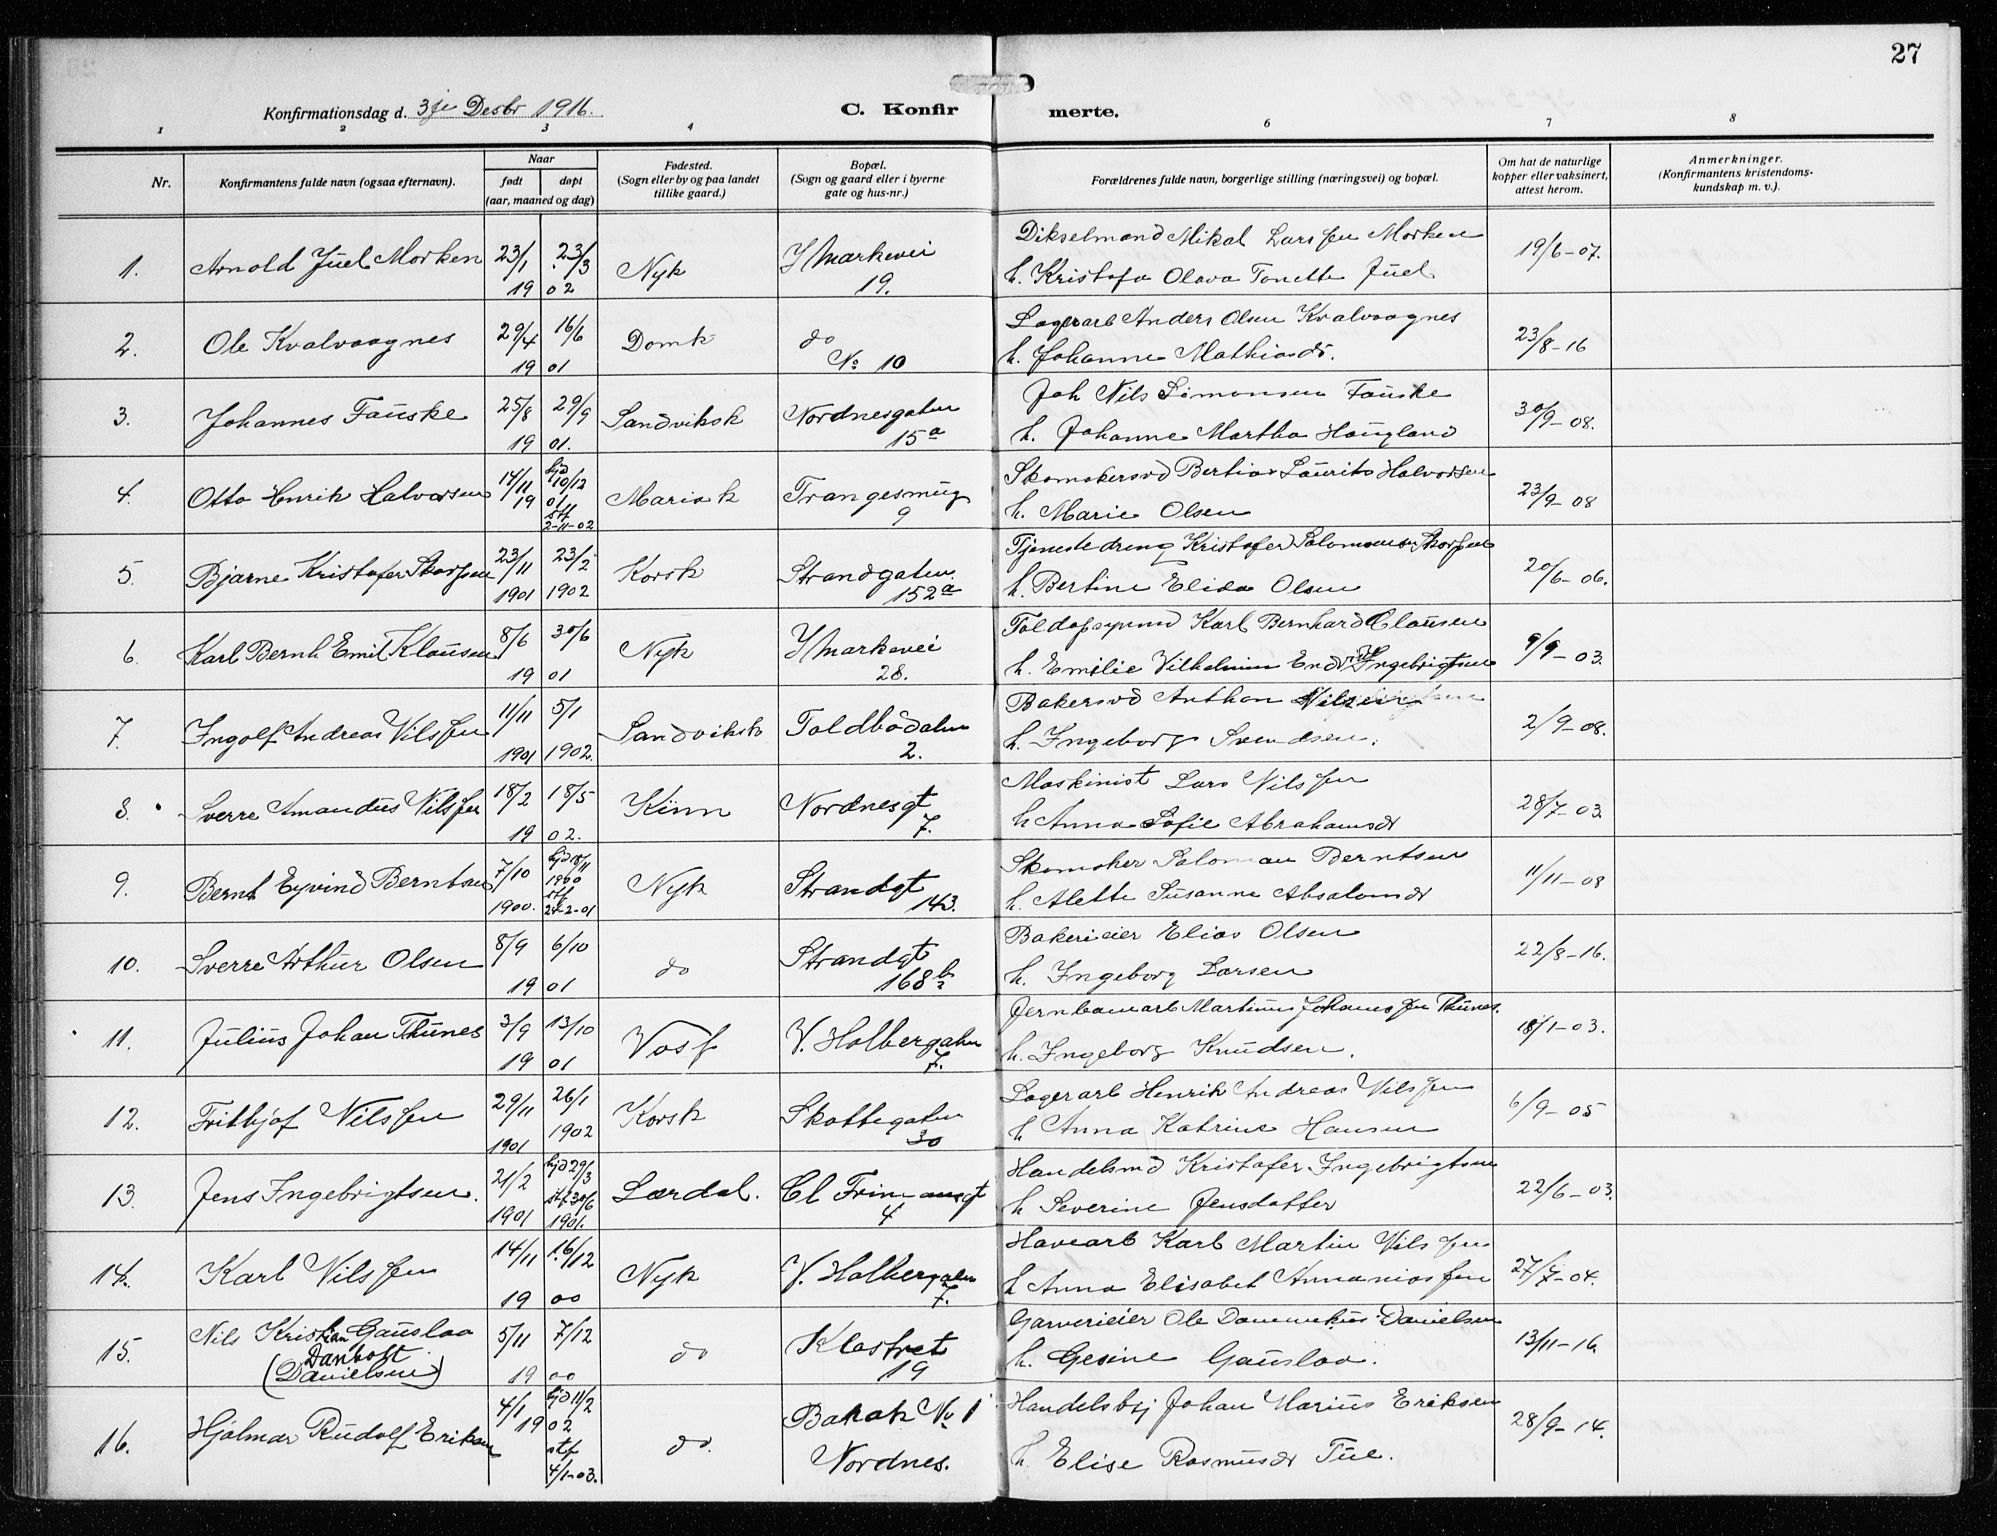 27
Konfirmationsdag d. 3je Desbr 1916.
C. Konfir merte.
1 2 3 4 5 6 7 8
Nr.
Konfirmantens fulde navn (ogsaa efternavn).
Naar
født døpt
(aar, maaned og dag)
Fødested.
(Sogn eller by og paa landet
tillike gaard.)
Bopæl.
(Sogn og gaard eller i byerne
gate og hus-nr.)
Forældrenes fulde navn, borgerlige stilling (næringsvei) og bopæl.
Om hat de naturlige
kopper eller vaksinert,
attest herom.
Anmerkninger.
(Konfirmantens kristendoms-
kundskap m. v.)
1. Arnold Juel Morken 23/1 23/3 Nyk Y Markevei
19 02 19.
Dikselmand Mikal Larssen Morken 19/6-07.
h. Kristofa Olava Tonette Juel
2. Ole Kvalvaagnes 29/4 16/6 Domk do
19 01 No 10
Lagerarb Anders Olsen Kvalvaagnes 23/8-16
h. Johanne Mathiasdr.
3. Johannes Fauske 25/8 29/9 Sandviksk Nordnesgaten
19 01. 15a
Joh Nils Simonsen Fauske 30/9-08.
h. Johanne Martha Haugland
4. Otto Henrik Halvorsen 14/11 hjd 10/12 Mariak Trangesmug
19 01. stf 2-11-02 9
Skomakersvd Bertias Laurits Halvorsen 23/9-08
h. Marie Olsen
5. Bjarne Kristofer Skorpen 23/11 23/2 Korsk Strandgaten
1901 1902 152a
Tjenestedreng Kristofer Salomonsen Skorpen 20/6-06.
h. Bertine Elida Olsen
6. Karl Bernh Emil Klausen 8/6 30/6 Nyk Y Markevei
19 01 28.
Toldopsynmd Karl Bernhard Clausen 9/9-03.
h. Emilie Vilhelmine Ingebrigtsen
7. Ingolf Andreas Nilssen 11/11 5/1 Sandviksk Toldbodalm
1901 1902. 2.
Bakersvd Anthon Nilsen 2/9-08.
h. Ingeborg Svendsen.
8. Sverre Amandus Nilssen 18/2 18/5 Kinn Nordnesgt
19 02. 7.
Maskinist Lars Nilssen 28/7-03.
h Anna Sofie Abrahamsdr
9. Bernt Eyvind Berntsen 7/10 hjd 18/11 1900 Nyk Strandgt
1900. stf 24-2-01 143.
Skomaker Saloman Berntsen 11/11-08
h. Alette Susanne Absalomsdr
10. Sverre Arthur Olsen 8/9 6/10 do Strandgt
19 01 168b
Bakerieier Elias Olsen 22/8-16.
h. Ingeborg Larsen
11. Julius Johan Thunes 3/9 13/10 Voss V. Holbergalm
19 01 7.
Jernbanearb Martinus Johannessen Thunes. 18/1-03.
h. Ingeborg Knudsen.
12. Frithjof Nilssen 29/11 26/1 Korsk Skottegaten
1901 1902 30
Lagerarb Henrik Andreas Nilssen 6/9-05
h Anna Katrine Hansen
13. Jens Ingebrigtsen. 21/2 hjd 29/3 Lærdal. Cl Frimansgt
1901 stf 30/6 1901. 4
Handelsmd Kristofer Ingebrigtsen 22/6-03.
h Severine Jensdatter
14. Karl Nilssen 14/11 16/12 Nyk V. Holbergalm
19 00 7.
Havearb Karl Martin Nilssen 27/7-04.
h Anna Elisabet Annaniassen
15. Nils Kristian Gauslaa 5/11 7/12 do Klostret
Danbolt
(Danielsen) 19 00 19
Garverieier Ole Dannevius Danielsen 13/11-16.
h. Gesine Gauslaa.
16. Hjalmar Rudolf Eriksen 4/1 hjd 11/2 do. Barak No 1
19 02 stf 4/1-03. Nordnes.
Handelsbtj Johan Marius Eriksen 28/9-14.
h Elise Rasmusdr Tue.